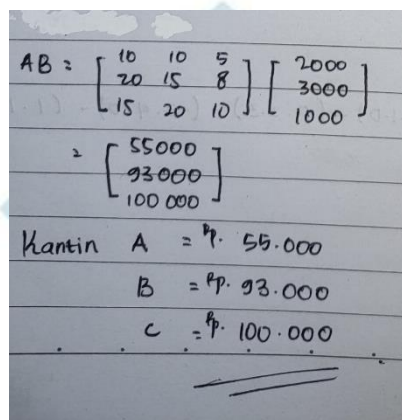 AB = [ 10 10 5 ] [ 2000 ]
[ 20 15 8 ] [ 3000 ]
[ 15 20 10 ] [ 1000 ]
= [ 55000 ]
[ 93000 ]
[ 100 000 ]
Kantin A = Rp. 55.000
B = Rp. 93.000
C = Rp. 100.000